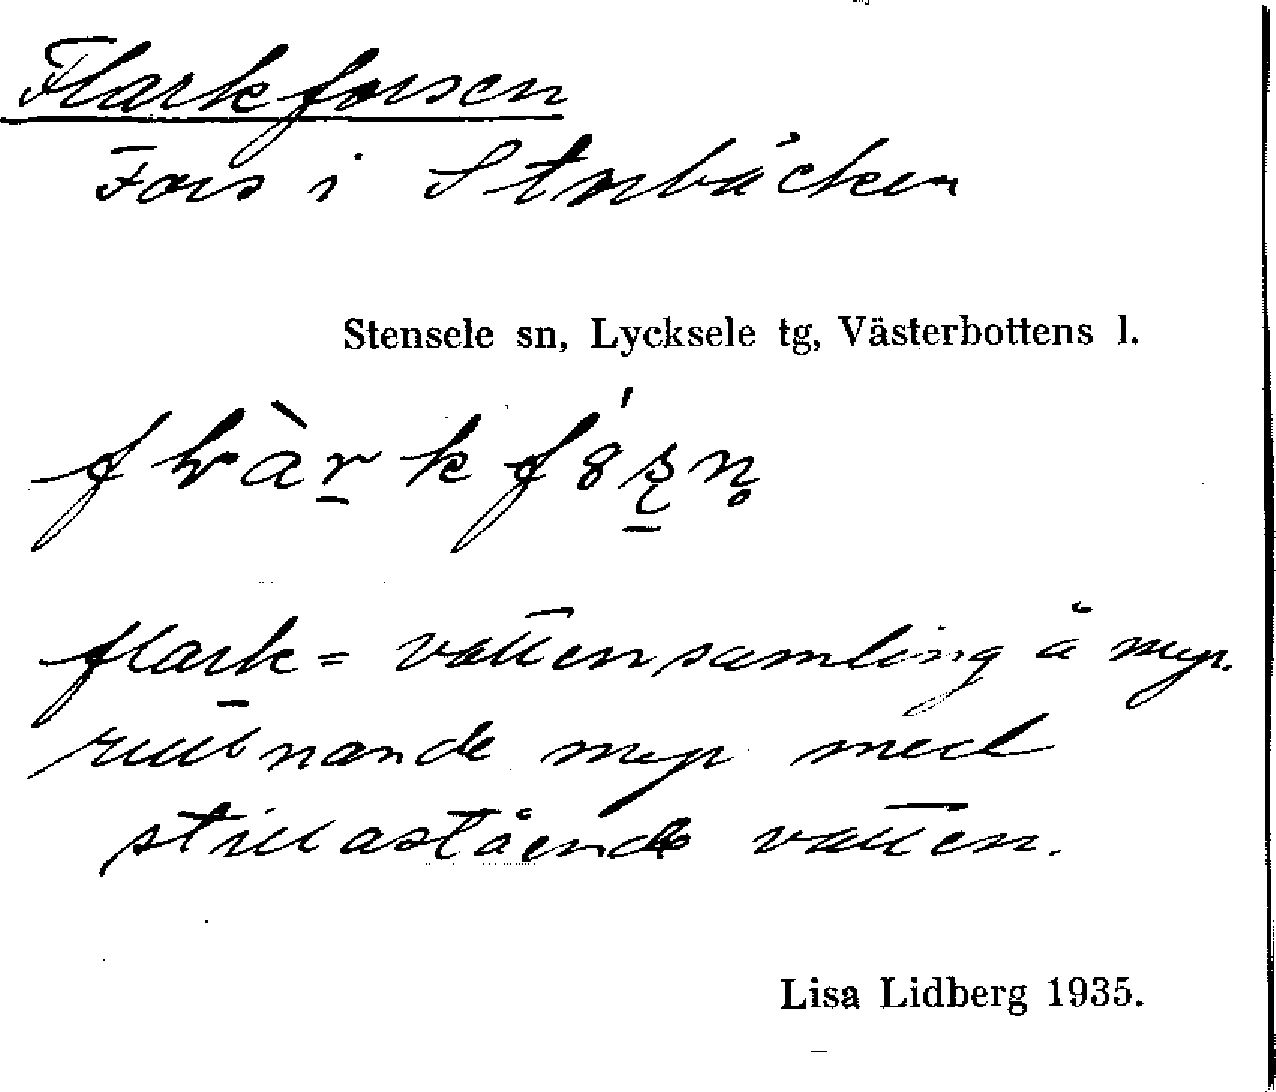 Flarkforsen
Fors i Stenbäcken
Stensele sn, Lycksele tg, Västerbottens l.
flark = vattensamling å myr.
myr med
stillastående vatten.
Lisa Lidberg 1935.